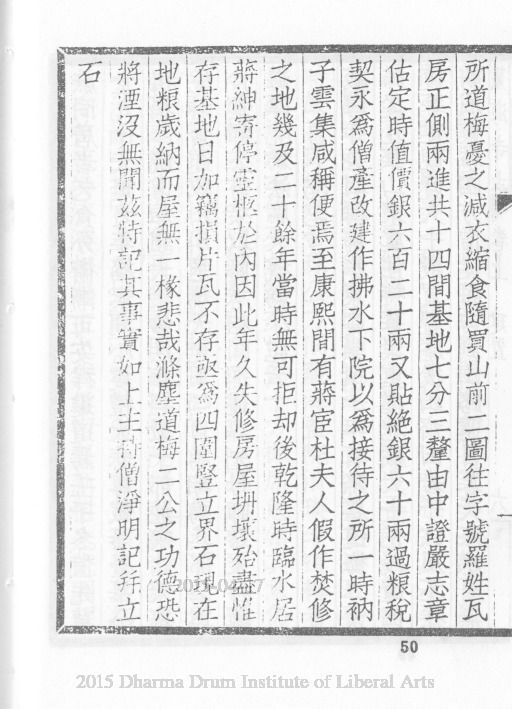 所道梅憂之減衣縮食隨買山前二圖往字號羅姓瓦
房正側兩進共十四間基地七分三釐由中證嚴志章
估定時值價銀六百二十兩又貼絕銀六十兩過粮稅
契永爲僧產改建作拂水下院以爲接待之所一時衲
子雲集咸稱便焉至康熙間有蔣宦杜夫人假作焚修
之地幾及二十餘年當時無可拒却後乾隆時臨水居
蔣紳寄停靈柩於內因此年久失修房屋坍壞殆盡惟
存基地日加竊損片瓦不存亟爲四圍豎立界石現在
地粮歲納而屋無一椽悲哉滌塵道梅二公之功德恐
將湮沒無聞茲特記其事實如上主持僧淨明記幷立
石
50
2015 Dharma Drum Institute of Liberal Arts